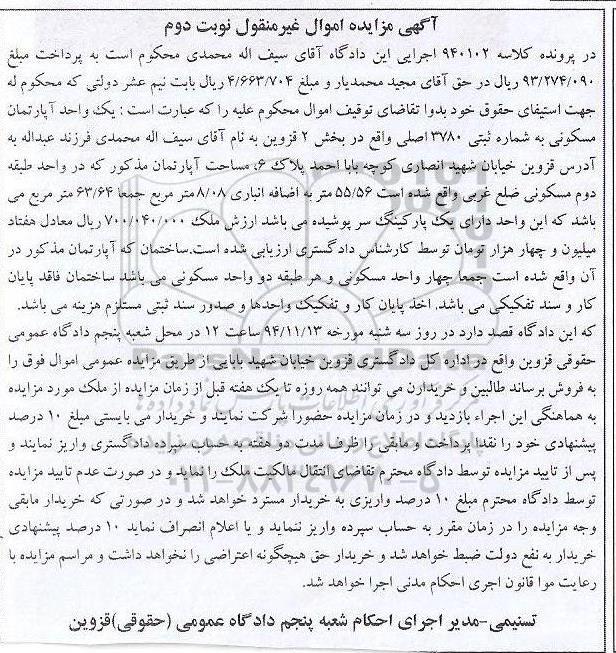 آگهی مزایده اموال غیرمنقول نوبت دوم
در پرونده کلاسه ۹۴۰۱۰۲ اجرایی این دادگاه آقای سیف اله محمدی محکوم است به پرداخت مبلغ
۹۳/۲۷۴/۰۹۰ ریال در حق آقای مجید محمدیار و مبلغ ۴/۶۶۳/۷۰۴ ریال بابت نیم عشر دولتی که محکوم له
جهت استیفای حقوق خود بدوا تقاضای توقیف اموال محکوم علیه را که عبارت است : یک واحد آپارتمان
مسکونی به شماره ثبتی ۳۷۸۰ اصلی واقع در بخش ۲ قزوین به نام آقای سیف اله محمدی فرزند عبداله به
آدرس قزوین خیابان شهید انصاری کوچه بابا احمد پلاک ۶، مساحت آپارتمان مذکور که در واحد طبقه
دوم مسکونی ضلع غربی واقع شده است ۵۵/۵۶ متر به اضافه انباری ۸/۰۸ متر مربع جمعا ۶۳/۶۴ متر مربع می
باشد که این واحد دارای یک پارکینگ سر پوشیده می باشد ارزش ملک ۷۰۰/۰۴۰/۰۰۰ ریال معادل هفتاد
میلیون و چهار هزار تومان توسط کارشناس دادگستری ارزیابی شده است.ساختمان که آپارتمان مذکور در
آن واقع شده است جمعا چهار واحد مسکونی و هر طبقه دو واحد مسکونی می باشد ساختمان فاقد پایان
کار و سند تفکیکی می باشد. اخذ پایان کار و تفکیک واحدها و صدور سند ثبتی مستلزم هزینه می باشد.
که این دادگاه قصد دارد در روز سه شنبه مورخه ۹۴/۱۱/۱۳ ساعت ۱۲ در محل شعبه پنجم دادگاه عمومی
حقوقی قزوین واقع در اداره کل دادگستری قزوین خیابان شهید بابایی از طریق مزایده عمومی اموال فوق را
به فروش برساند طالبین و خریداران می توانند همه روزه تا یک هفته قبل از زمان مزایده از ملک مورد مزایده
به هماهنگی این اجراء بازدید و در زمان مزایده حضورا شرکت نمایند و خریدار می بایستی مبلغ ۱۰ درصد
پیشنهادی خود را نقدا پرداخت و مابقی را ظرف مدت دو هفته به حساب سپرده دادگستری واریز نمایند و
پس از تایید مزایده توسط دادگاه محترم تقاضای انتقال مالکیت ملک را نماید و در صورت عدم تایید مزایده
توسط دادگاه محترم مبلغ ۱۰ درصد واریزی به خریدار مسترد خواهد شد و در صورتی که خریدار مابقی
وجه مزایده را در زمان مقرر به حساب سپرده واریز ننماید و یا اعلام انصراف نماید ۱۰ درصد پیشنهادی
خریدار به نفع دولت ضبط خواهد شد و خریدار حق هیچگونه اعتراضی را نخواهد داشت و مراسم مزایده با
رعایت موا قانون اجری احکام مدنی اجرا خواهد شد.
تسنیمی-مدیر اجرای احکام شعبه پنجم دادگاه عمومی (حقوقی)قزوین